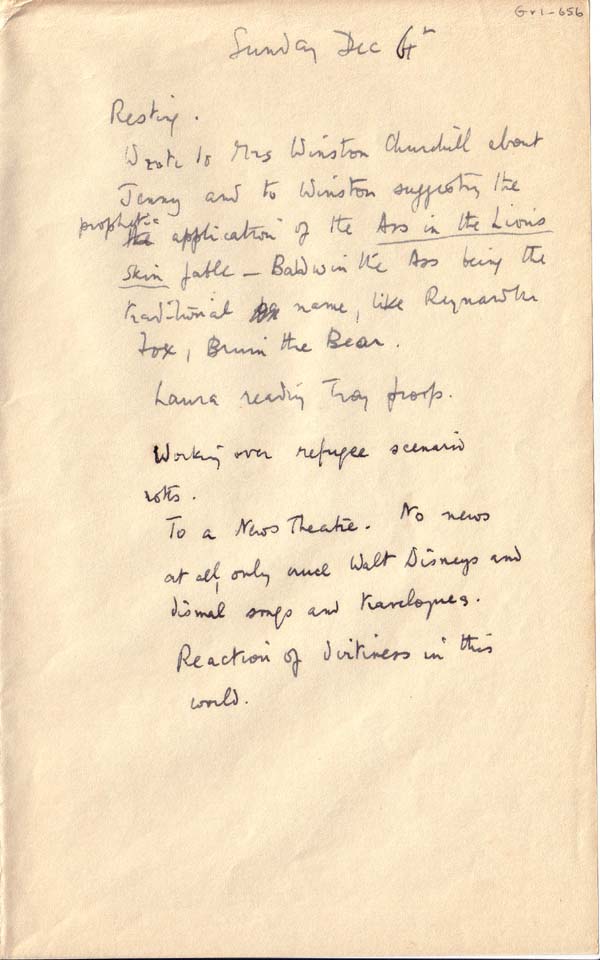 Gr1-656
Sunday Dec 4th
Resting.
Wrote to Mrs Winston Churchill about
Jenny and to Winston suggesting the
prophetic
the application of the Ass in the Lion's
Skin fable – Baldwin the Ass being the
traditional name, like Reynard the
Fox, Bruin the Bear.
Laura reading Troy proofs.
Working over refugee scenario
notes.
To a News Theatre. No news
at all, only cruel Walt Disneys and
dismal songs and travelogues.
Reaction of dirtiness in this
world.